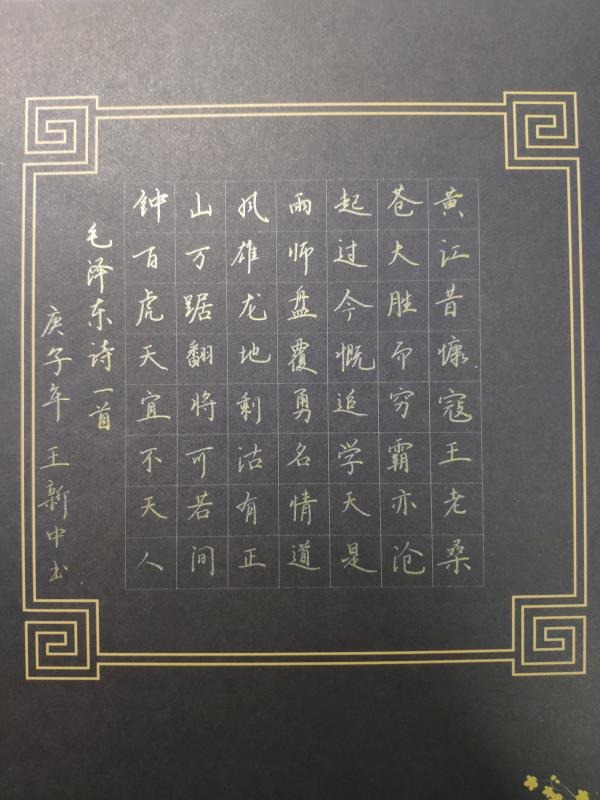 钟山风雨起苍黄
百万雄师过大江
虎踞龙盘今胜昔
天翻地覆慨而慷
宜将剩勇追穷寇
不可沽名学霸王
天若有情天亦老
人间正道是沧桑
毛泽东诗一首
庚子年 王新中书